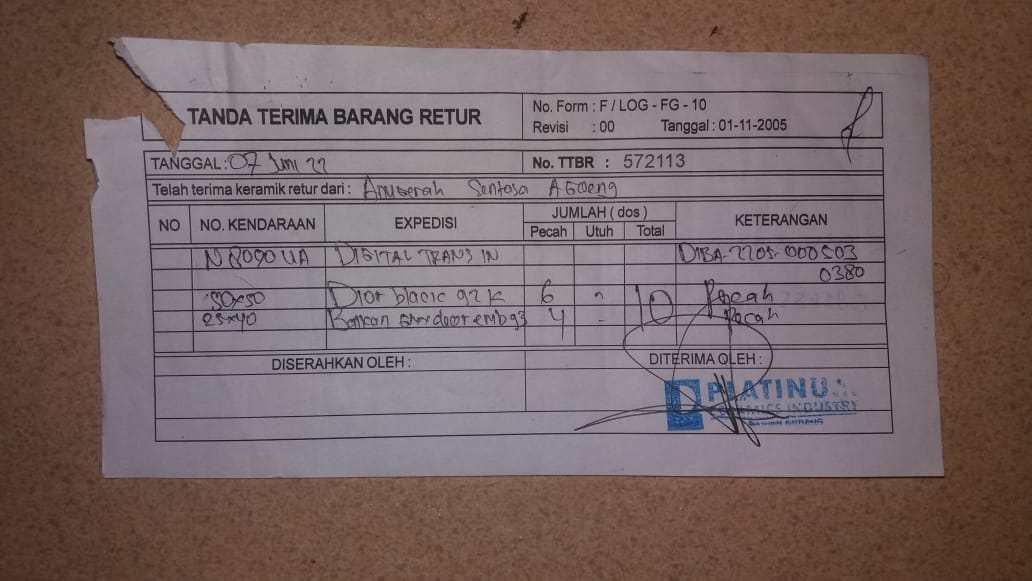 TANDA TERIMA BARANG RETUR
No. Form : F / LOG - FG - 10
Revisi : 00 Tanggal : 01-11-2005
TANGGAL : 07 Juni 22
No. TTBR : 572113
Telah terima keramik retur dari : Anugerah Sentosa AGoeng
NO NO. KENDARAAN EXPEDISI JUMLAH ( dos ) KETERANGAN
Pecah Utuh Total
N 8090 UA DIGITAL TRANS IN DIBA-2205-000503
0380
50x50 Dior black 92 K 6 - 10 Pecah
25x40 4 - Pecah
DISERAHKAN OLEH : DITERIMA OLEH :
PLATINUM
CERAMICS INDUSTRY